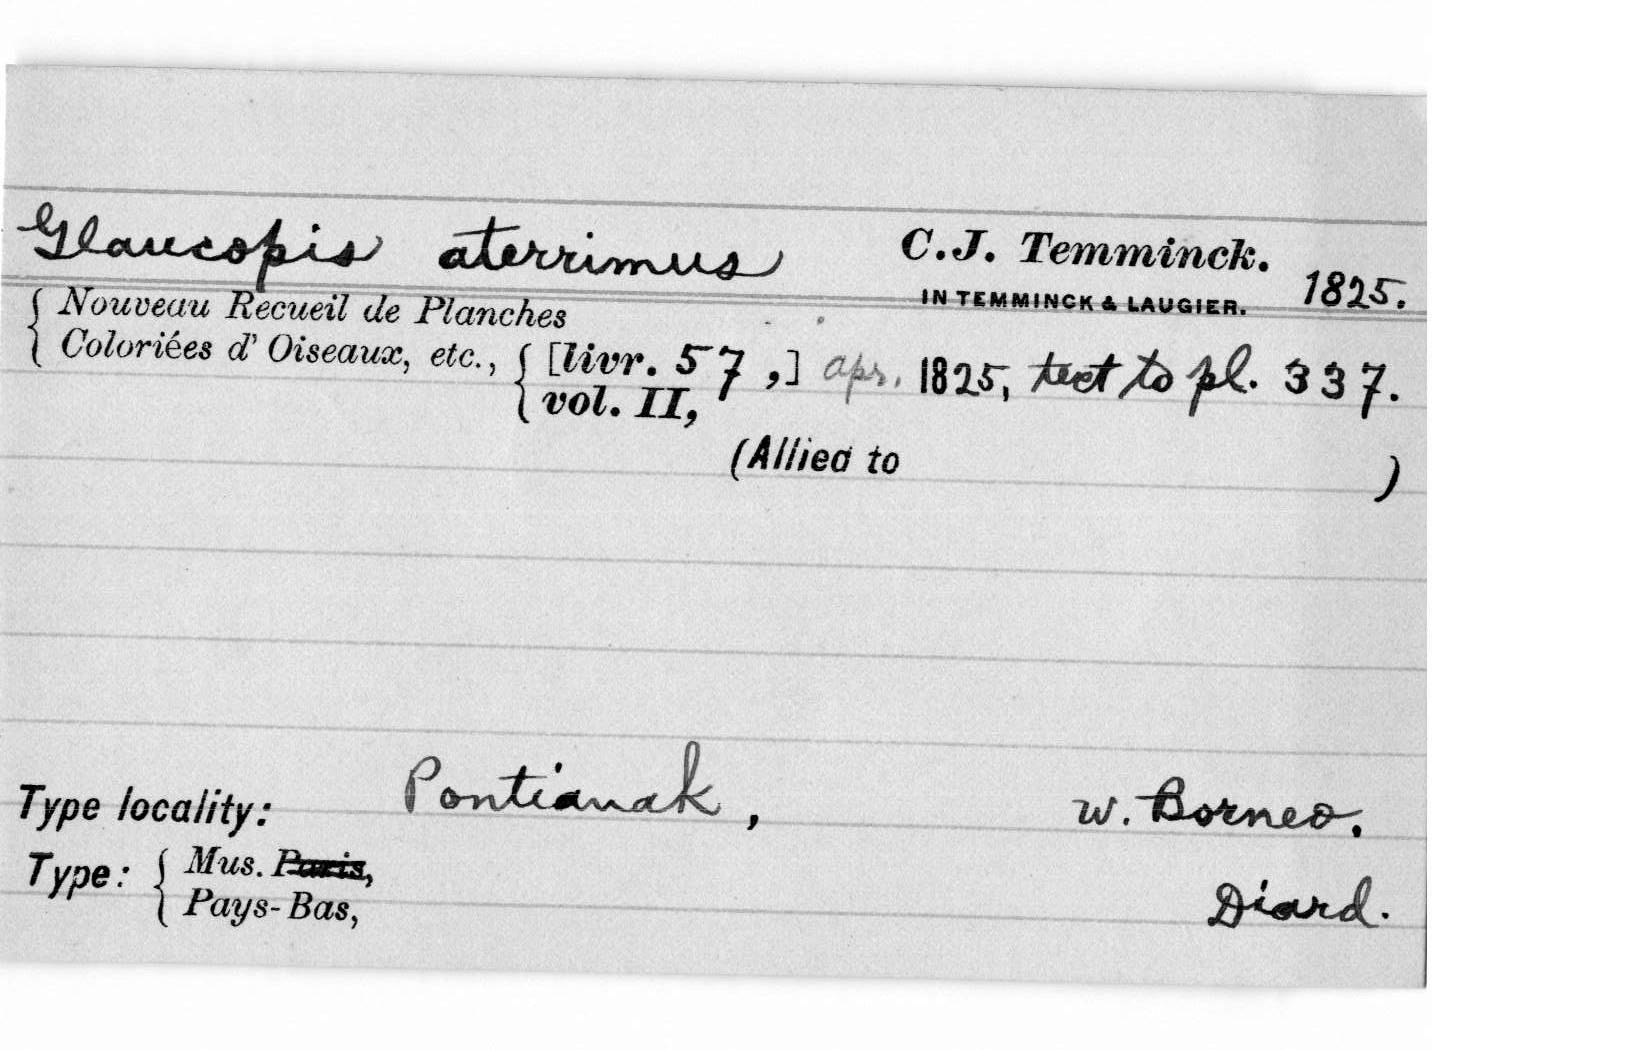 Glaucopis aterrimus C.J. Temminck.
IN TEMMINCK & LAUGIER. 1825.
Nouveau Recueil de Planches
Coloriées d' Oiseaux, etc., [livr. 57,] apr. 1825, text to pl. 337.
vol. II,
(Allied to )
Type locality: Pontianak, W. Borneo.
Type: Mus. Paris,
Pays-Bas, Diard.